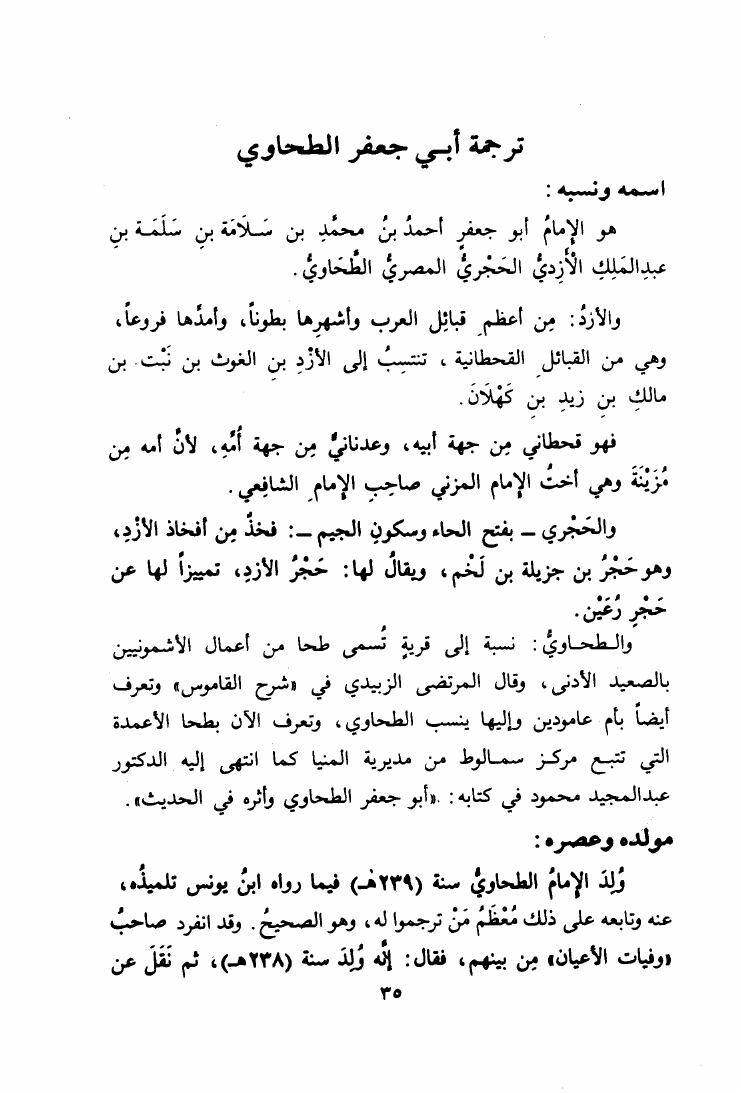 ترجمة أبي جعفر الطحاوي
اسمه ونسبه :
هو الإمامُ أبو جعفرٍ أحمدُ بنُ محمَّدِ بن سَلَامَة بنِ سَلَمَة بنِ
عبدِالمَلِكِ الأَزديُّ الحَجْريُّ المصريُّ الطَّحَاويُّ.
والأزدُ: مِن أعظمِ قبائِل العرب وأشهرِها بطوناً، وأمدِّها فروعاً،
وهي من القبائلِ القحطانية ، تنتسِبُ إلى الأزْدِ بنِ الغوث بن نَبْت بن
مالكِ بنِ زيدِ بنِ كَهْلَانَ.
فهو قحطاني مِن جهة أبيه، وعدنانيٌّ مِن جهة أُمِّهِ، لأنَّ أمه مِن
مُزَيْنَةَ وهي أختُ الإمام المزني صاحِبِ الإمامِ الشافِعي.
والحَجْري ــ بفتح الحاء وسكونِ الجيم ــ: فخذٌ مِن أفخاذ الأزْدِ،
وهو حَجْرُ بن جزيلة بن لَخْم، ويقالُ لها: حَجْرُ الأزدِ، تمييزاً لها عن
حَجْرِ رُعَيْن.
والـطحـاويُّ: نسبة إلى قريةٍ تُسمى طحا من أعمال الأشمونيين
بالصعيد الأدنى، وقال المرتضى الزبيدي في «شرح القاموس» وتعرف
أيضاً بأم عامودين وإليها ينسب الطحاوي، وتعرف الآن بطحا الأعمدة
التي تتبع مركز سمالوط من مديرية المنيا كما انتهى إليه الدكتور
عبدالمجيد محمود في كتابه: «أبو جعفر الطحاوي وأثره في الحديث».
مولده وعصره:
وُلِدَ الإمامُ الطحاويُّ سنة (٢٣٩هـ) فيما رواه ابنُ يونس تلميذُه،
عنه وتابعه على ذلك مُعْظَمُ مَنْ ترجموا له، وهو الصحيحُ. وقد انفرد صاحبُ
«وفيات الأعيان» مِن بينهم، فقال: إنَّه وُلِدَ سنة (٢٣٨هـ)، ثم نَقَلَ عن
٣٥